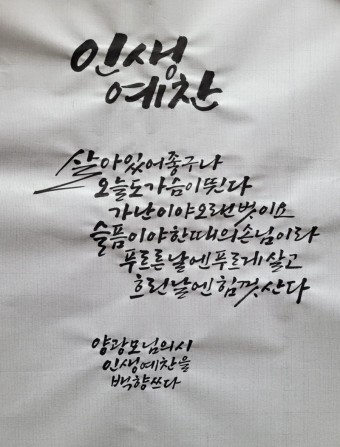 인생
예찬
살아있어좋구나
오늘도가슴이뛴다
가난이야오랜벗이요
슬픔이야한때의손님이라
푸르른날엔푸르게살고
흐린날엔힘껏산다
양광모님의시
인생예찬을
백향쓰다